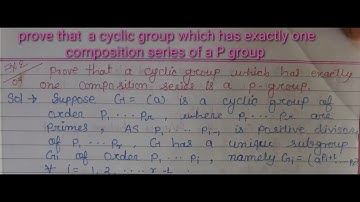 prove that a cyclic group which has exactly one
composition series of a P group
prove that a cyclic group which has exactly
one composition series is a p-group.
Sol → Suppose G = (a) is a cyclic group of
order p, .... pr, where p, .... pr are
primes, AS p, .... pi-1, is positive divisor
of p, .... pr, G has a unique subgroup
Gi of order p, .... pi, namely Gi =